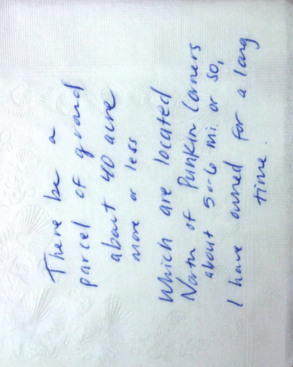 There be a
parcel of ground
about 40 acre
more or less
Which are located
North of Punkin Corners
about 5-6 mi. or so,
I have owned for a long
time.